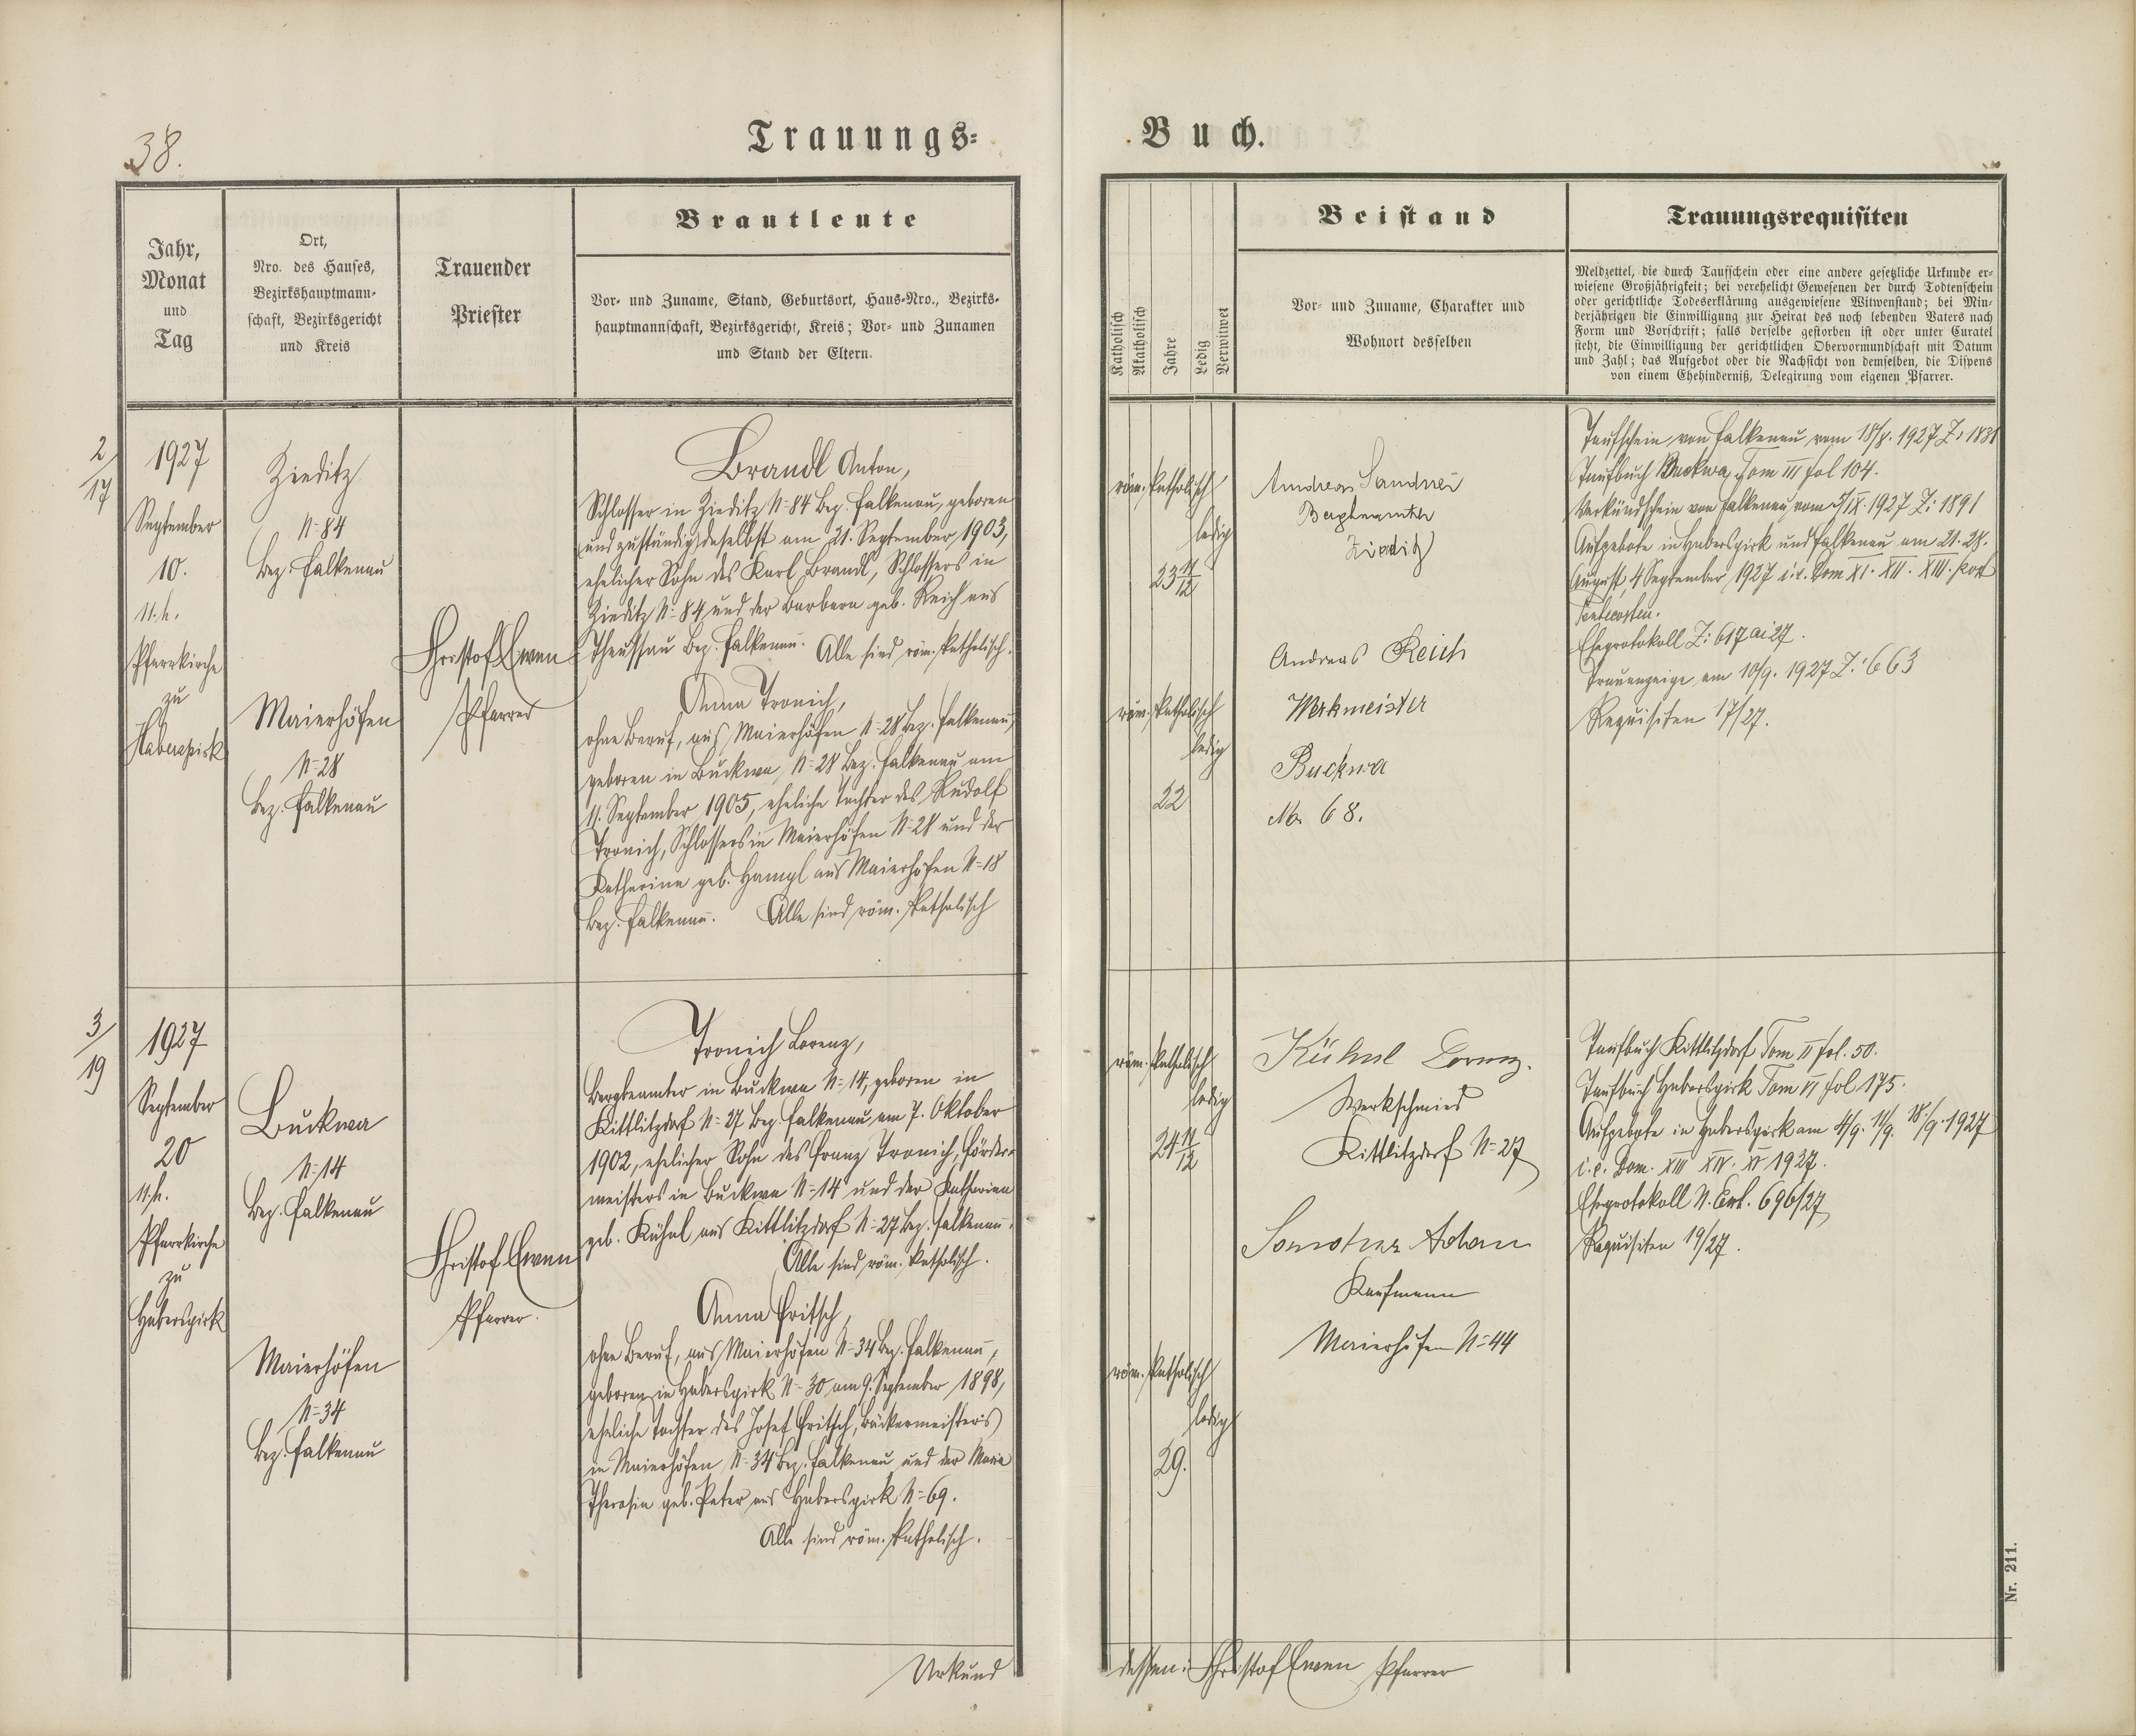 38.
Trauungs=
Buch.
Jahr,
Monat
und
Tag
Ort,
Nro. des Hauses,
Bezirkshauptmann-
schaft, Bezirksgericht
und Kreis
Trauender
Priester
Brautleute
Vor- und Zuname, Stand, Geburtsort, Haus-Nro., Bezirks-
hauptmannschaft, Bezirksgericht, Kreis; Vor- und Zunamen
und Stand der Eltern.
Katholisch
Akatholisch
Jahre
Ledig
Verwitwet
Beistand
Vor- und Zuname, Charakter und
Wohnort desselben
Trauungsrequisiten
Meldzettel, die durch Taufschein oder eine andere gesetzliche Urkunde er-
wiesene Großjährigkeit; bei verehelicht Gewesenen der durch Todtenschein
oder gerichtliche Todeserklärung ausgewiesene Witwenstand; bei Min-
derjährigen die Einwilligung zur Heirat des noch lebenden Vaters nach
Form und Vorschrift; falls derselbe gestorben ist oder unter Curatel
steht, die Einwilligung der gerichtlichen Obervormundschaft mit Datum
und Zahl; das Aufgebot oder die Nachsicht von demselben, die Dispens
von einem Ehehinderniß, Delegirung vom eigenen Pfarrer.
2/17
1927
September
10.
11. h.
Pfarrkirche
zu
Haberspirk
Zieditz
N=84
Bez. Falkenau
Maierhöfen
N=28
Bez. Falkenau
Christof Ewen
Pfarrer
Brandl Anton,
Schlosser in Zieditz N=84 Bez. Falkenau, geboren
und zuständig daselbst am 21. September 1903,
ehelicher Sohn des Karl Brandl, Schlossers in
Zieditz N=84 und der Barbara geb. Reich aus
Theussau Bez. Falkenau. Alle sind röm. katholisch.
Anna Tronich,
ohne Beruf, aus Maierhöfen N=28 Bez. Falkenau,
geboren in Buckwa, N=28 Bez. Falkenau am
11. September 1905, eheliche Tochter des Rudolf
Tronich, Schlossers in Maierhöfen N=28 und der
Katharina geb. Hampl aus Maierhöfen N=18
Bez. Falkenau. Alle sind röm. katholisch
röm. katholisch
ledig
23 11/12
röm. katholisch
ledig
22
Andreas Sandner
Bergbeamter
Zieditz
Andreas Reich
Werkmeister
Buckwa
No. 68.
Taufschein von Falkenau vom 18/8. 1927 Z: 1831
Taufbuch Buckwa, Tom III fol 104.
Verkündschein von Falkenau vom 5/IX. 1927 Z: 1891
Aufgebote in Haberspirk und Falkenau am 21. 28.
August, 4 September 1927 i.e. Dom XI. XII. XIII. post
Pentecosten.
Eheprotokoll Z: 617 ai 27.
Trauanzeige am 10/9. 1927 Z: 663
Requisiten 17/27.
3/19
1927
September
20
11. h.
Pfarrkirche
zu
Haberspirk
Buckwa
N=14
Bez. Falkenau
Maierhöfen
N=34
Bez. Falkenau
Christof Ewen
Pfarrer.
Tronich Lorenz,
Bergbeamter in Buckwa N=14, geboren in
Kittlitzdorf N=27 Bez. Falkenau, am 7. Oktober
1902, ehelicher Sohn des Franz Tronich, Förder-
meisters in Buckwa N=14 und der Katharina
geb. Kühnl aus Kittlitzdorf N=27 Bez. Falkenau.
Alle sind röm. katholisch.
Anna Fritsch,
ohne Beruf, aus Maierhöfen N=34 Bez. Falkenau,
geboren in Haberspirk N=30 am 9. September 1898,
eheliche Tochter des Josef Fritsch, Bäckermeisters
in Maierhöfen, N=34 Bez. Falkenau und der Maria
Theresia geb. Peter aus Haberspirk N=69.
Alle sind röm. katholisch.
röm. katholisch
ledig
24 11/12
röm. katholisch
ledig
29.
Kühnl Lorenz.
Werkschmied
Kittlitzdorf N=27
Adam
Kaufmann
Maierhöfen N=44
Taufbuch Kittlitzdorf Tom II fol. 50.
Taufbuch Haberspirk Tom VI fol 175.
Aufgebote in Haberspirk am 4/9. 11/9. 18/9. 1927
i.e. Dom. XIII XIV. XV 1927.
Eheprotokoll N. Exh. 696/27
Requisiten 19/27.
Urkund
dessen: Christof Ewen Pfarrer
Nr. 211.